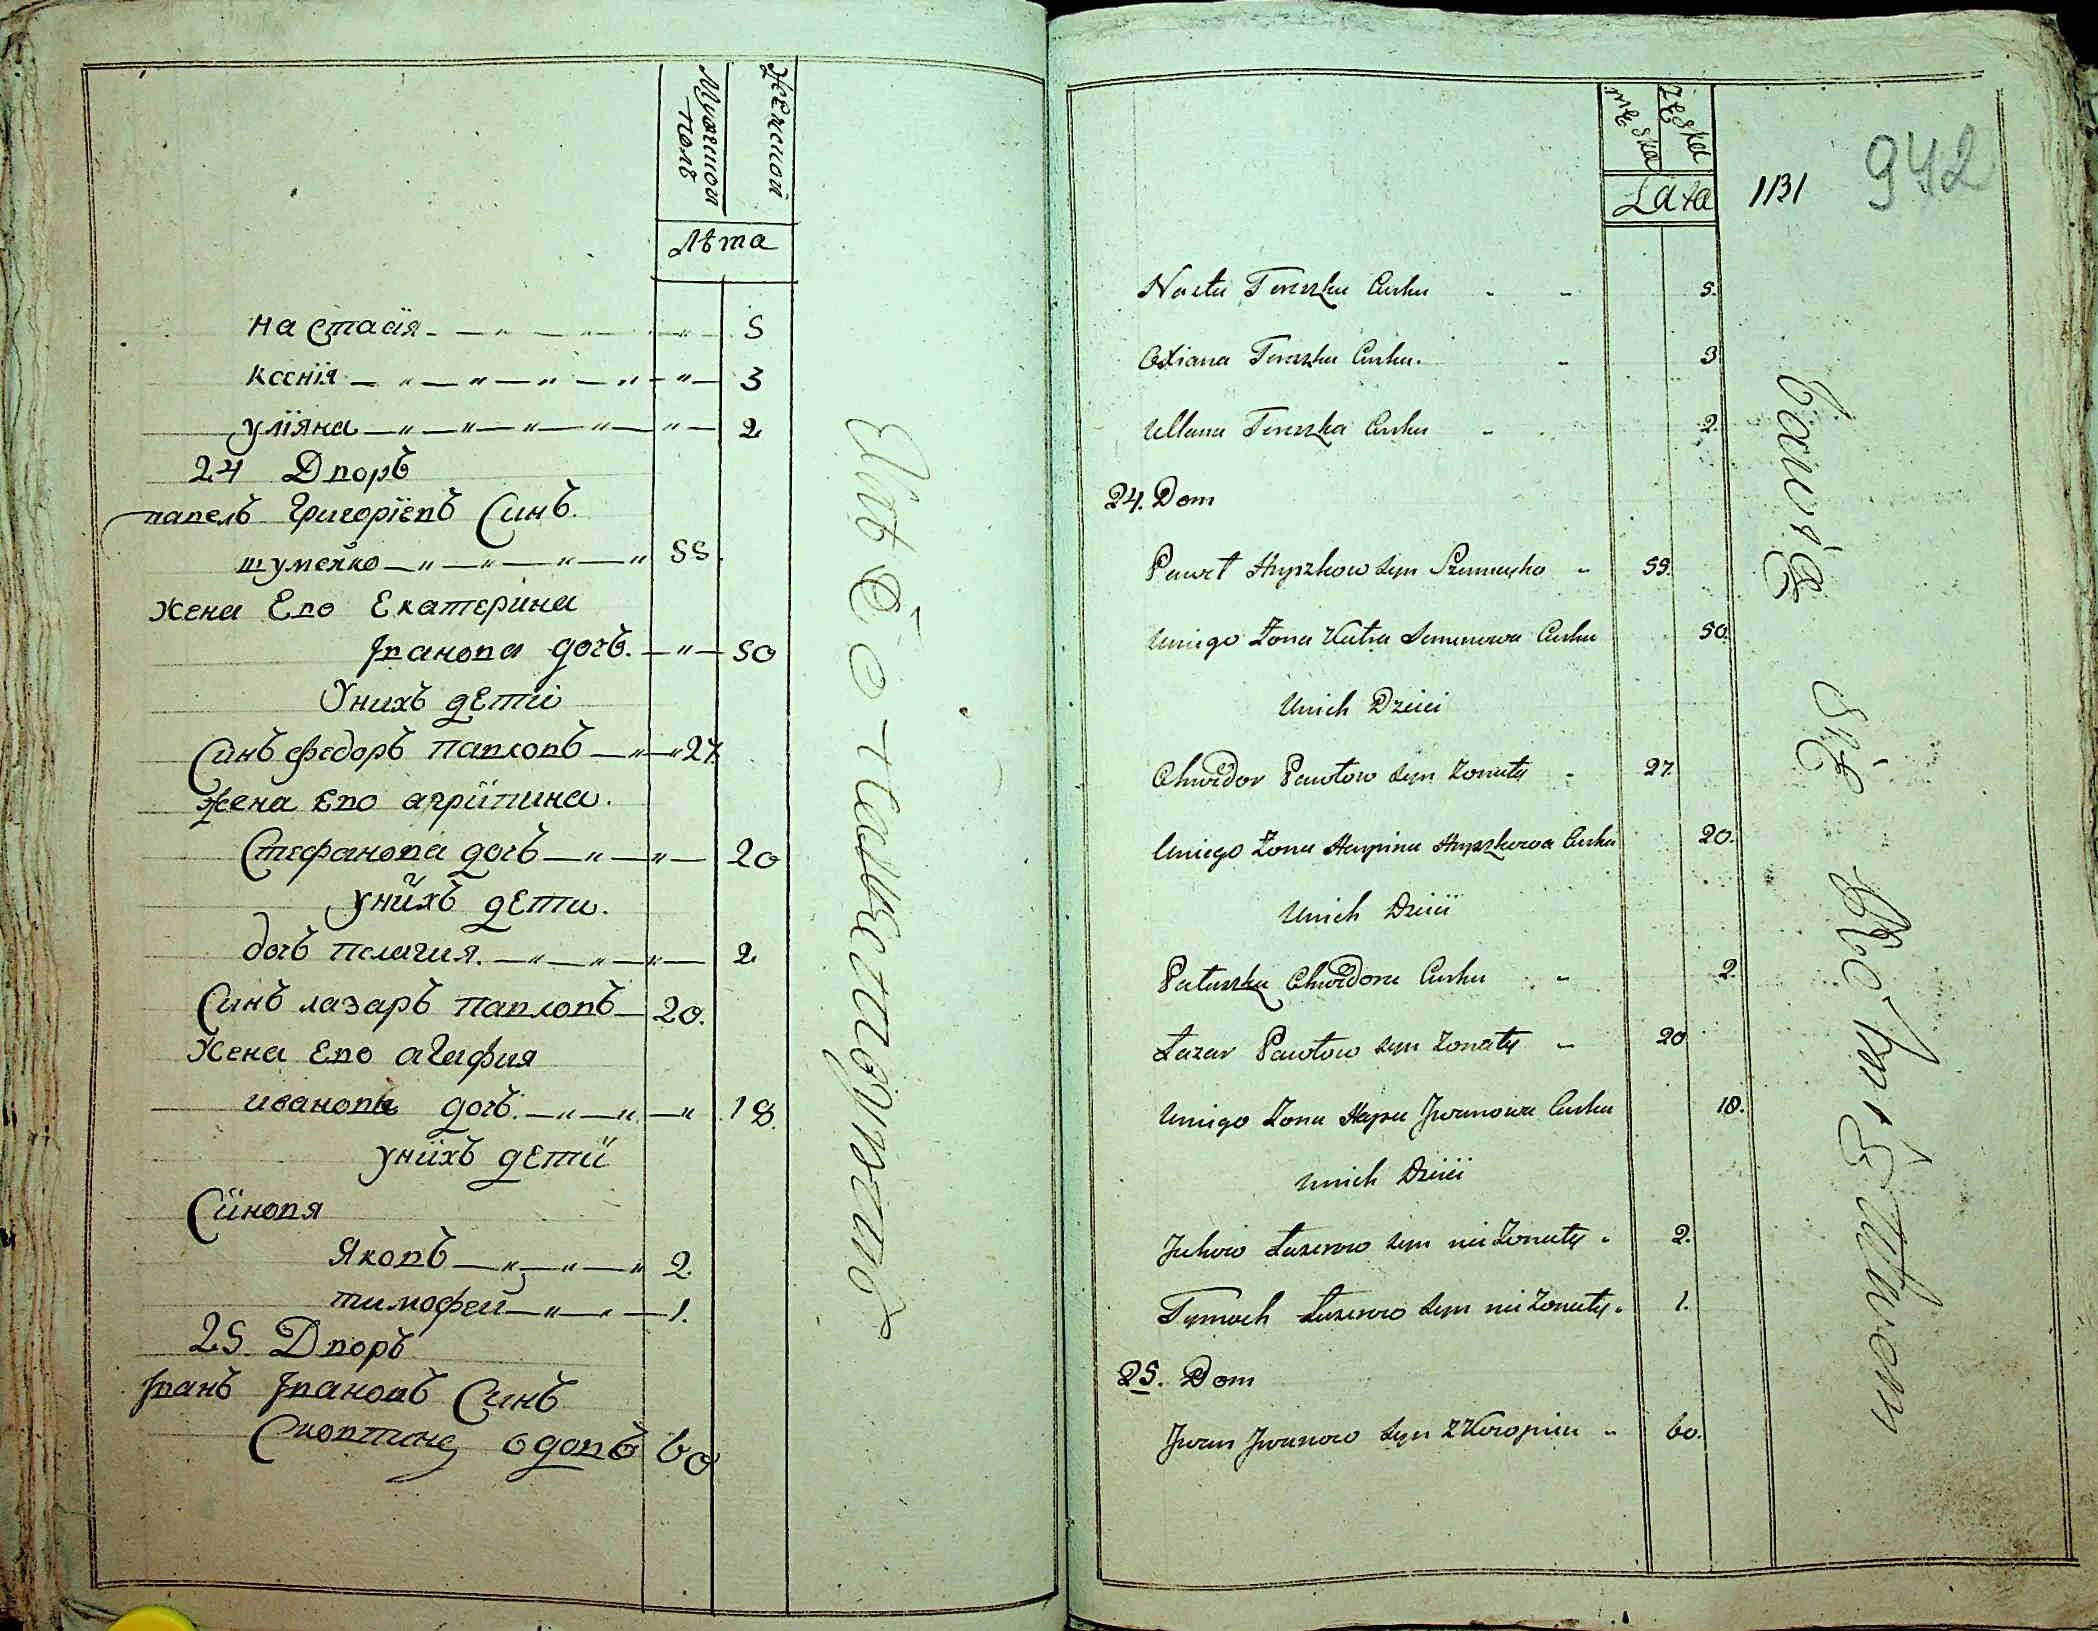 Мужеской
полъ
Женской
Лѣта
настасія 5
ксенія 3
уліяна 2
24 Дворъ
павелъ Григоріевъ Синъ
шумейко 55
Жена Его Екатерина
Іванова дочъ 50
Унихъ дети
Синъ федоръ павловъ 27
Жена Его агрипина
Стефанова дочъ 20
унихъ дети
дочъ пелагия 2
Синъ лазаръ павловъ 20.
Жена Его агафия
иванова дочъ 18
унихъ дети
Синовя
Яковъ 2
тимофей 1.
25 Дворъ
Іванъ Івановъ Синъ
вдовъ 60
męska
Żęska
Lata
1131
942
Nasta Tereszka Curka 5.
Oxiana Tereszka Curka. 3
Ullana Tereszka Curka 2.
24. Dom
Paweł Hryszkow syn Szumeyko 55.
Uniego Żona Katra Semenowa Curka 50.
Unich Dzieci
Chwedor Pawłow syn żonaty 27.
Uniego Żona Harpina Hryszkowa Curka 20.
Unich Dzieci
Pałaszka Chwedora Curka 2.
Łazar Pawłow syn żonaty 20
Uniego Żona Hapa Jwanowa Curka 18.
Unich Dzieci
Jakow Łazarow syn nieżonaty 2.
Tymoch Łazarow syn nieżonaty 1.
25. Dom
Jwan Jwanow syn 60.